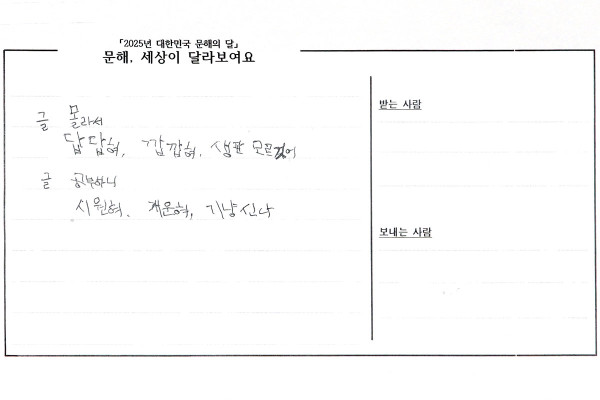 「2025년 대한민국 문해의 달」
문해, 세상이 달라보여요
글 몰라서
답답혀, 깝깝혀, 생판 모르것어
글 공부하니
시원혀, 개운혀, 기냥 신나
받는 사람
보내는 사람